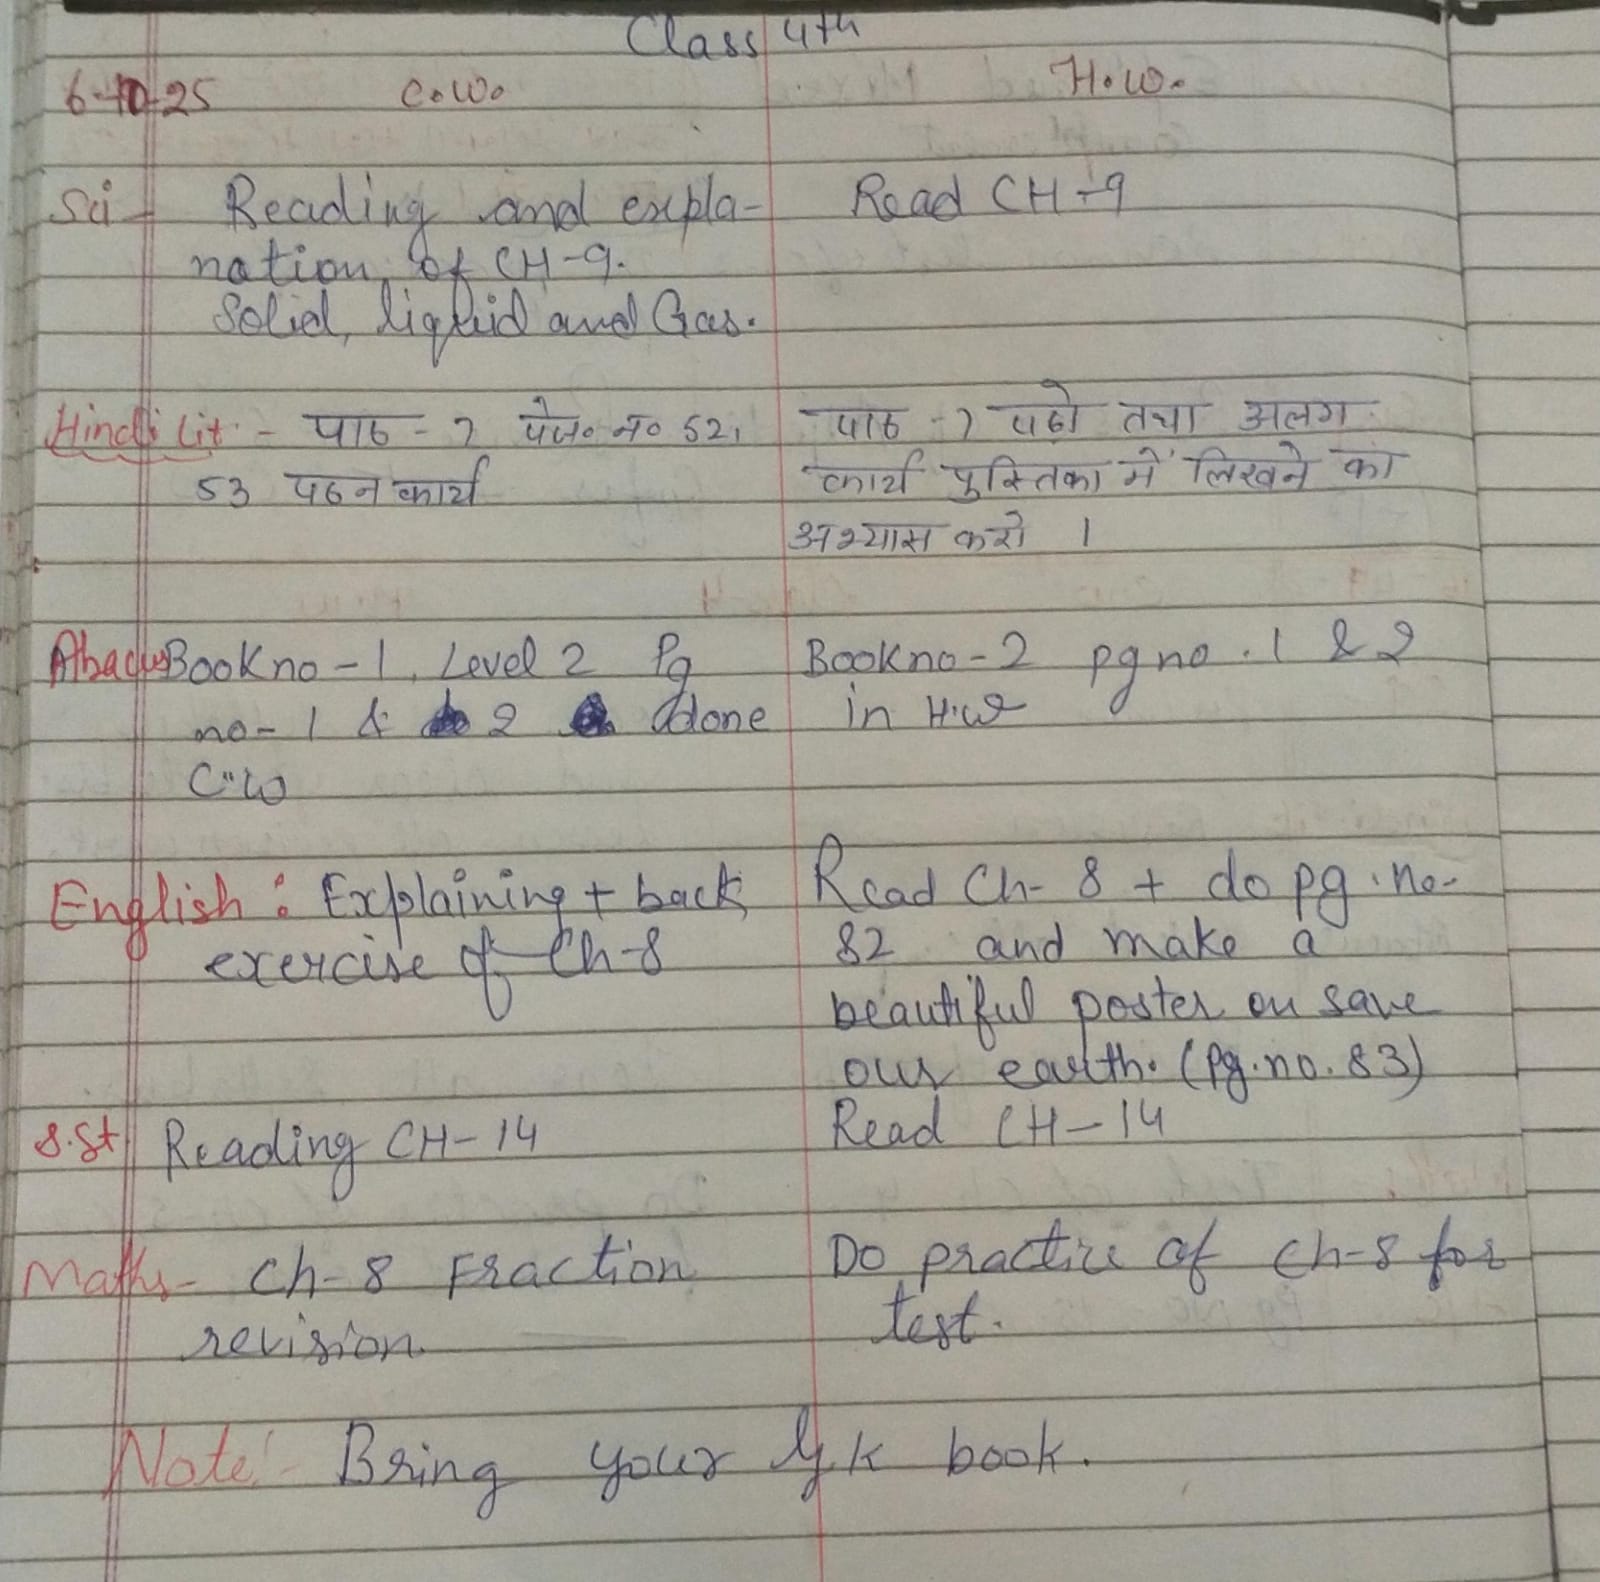 Class 4th
6-10-25 C.W. H.W.
Sci - Reading and expla- Read CH-9
nation of CH-9.
Solid, liquid and Gas.
Hindi Lit. - पाठ - 7 पेज० न० 52, पाठ - 7 पढो तथा अलग
53 पठन कार्य कार्य पुस्तिका में लिखने का
अभ्यास करो ।
Abacus Book no - 1, Level 2 Pg Book no - 2 pg no. 1 & 2
no - 1 & 2 done in H.W
C.W
English : Explaining + back Read Ch- 8 + do pg. no-
exercise of Ch-8 82 and make a
beautiful poster on save
our earth. (Pg.no. 83)
S.St Reading CH-14 Read CH-14
Maths - Ch-8 Fraction Do practice of Ch-8 for
revision test.
Note:- Bring your G.K book.